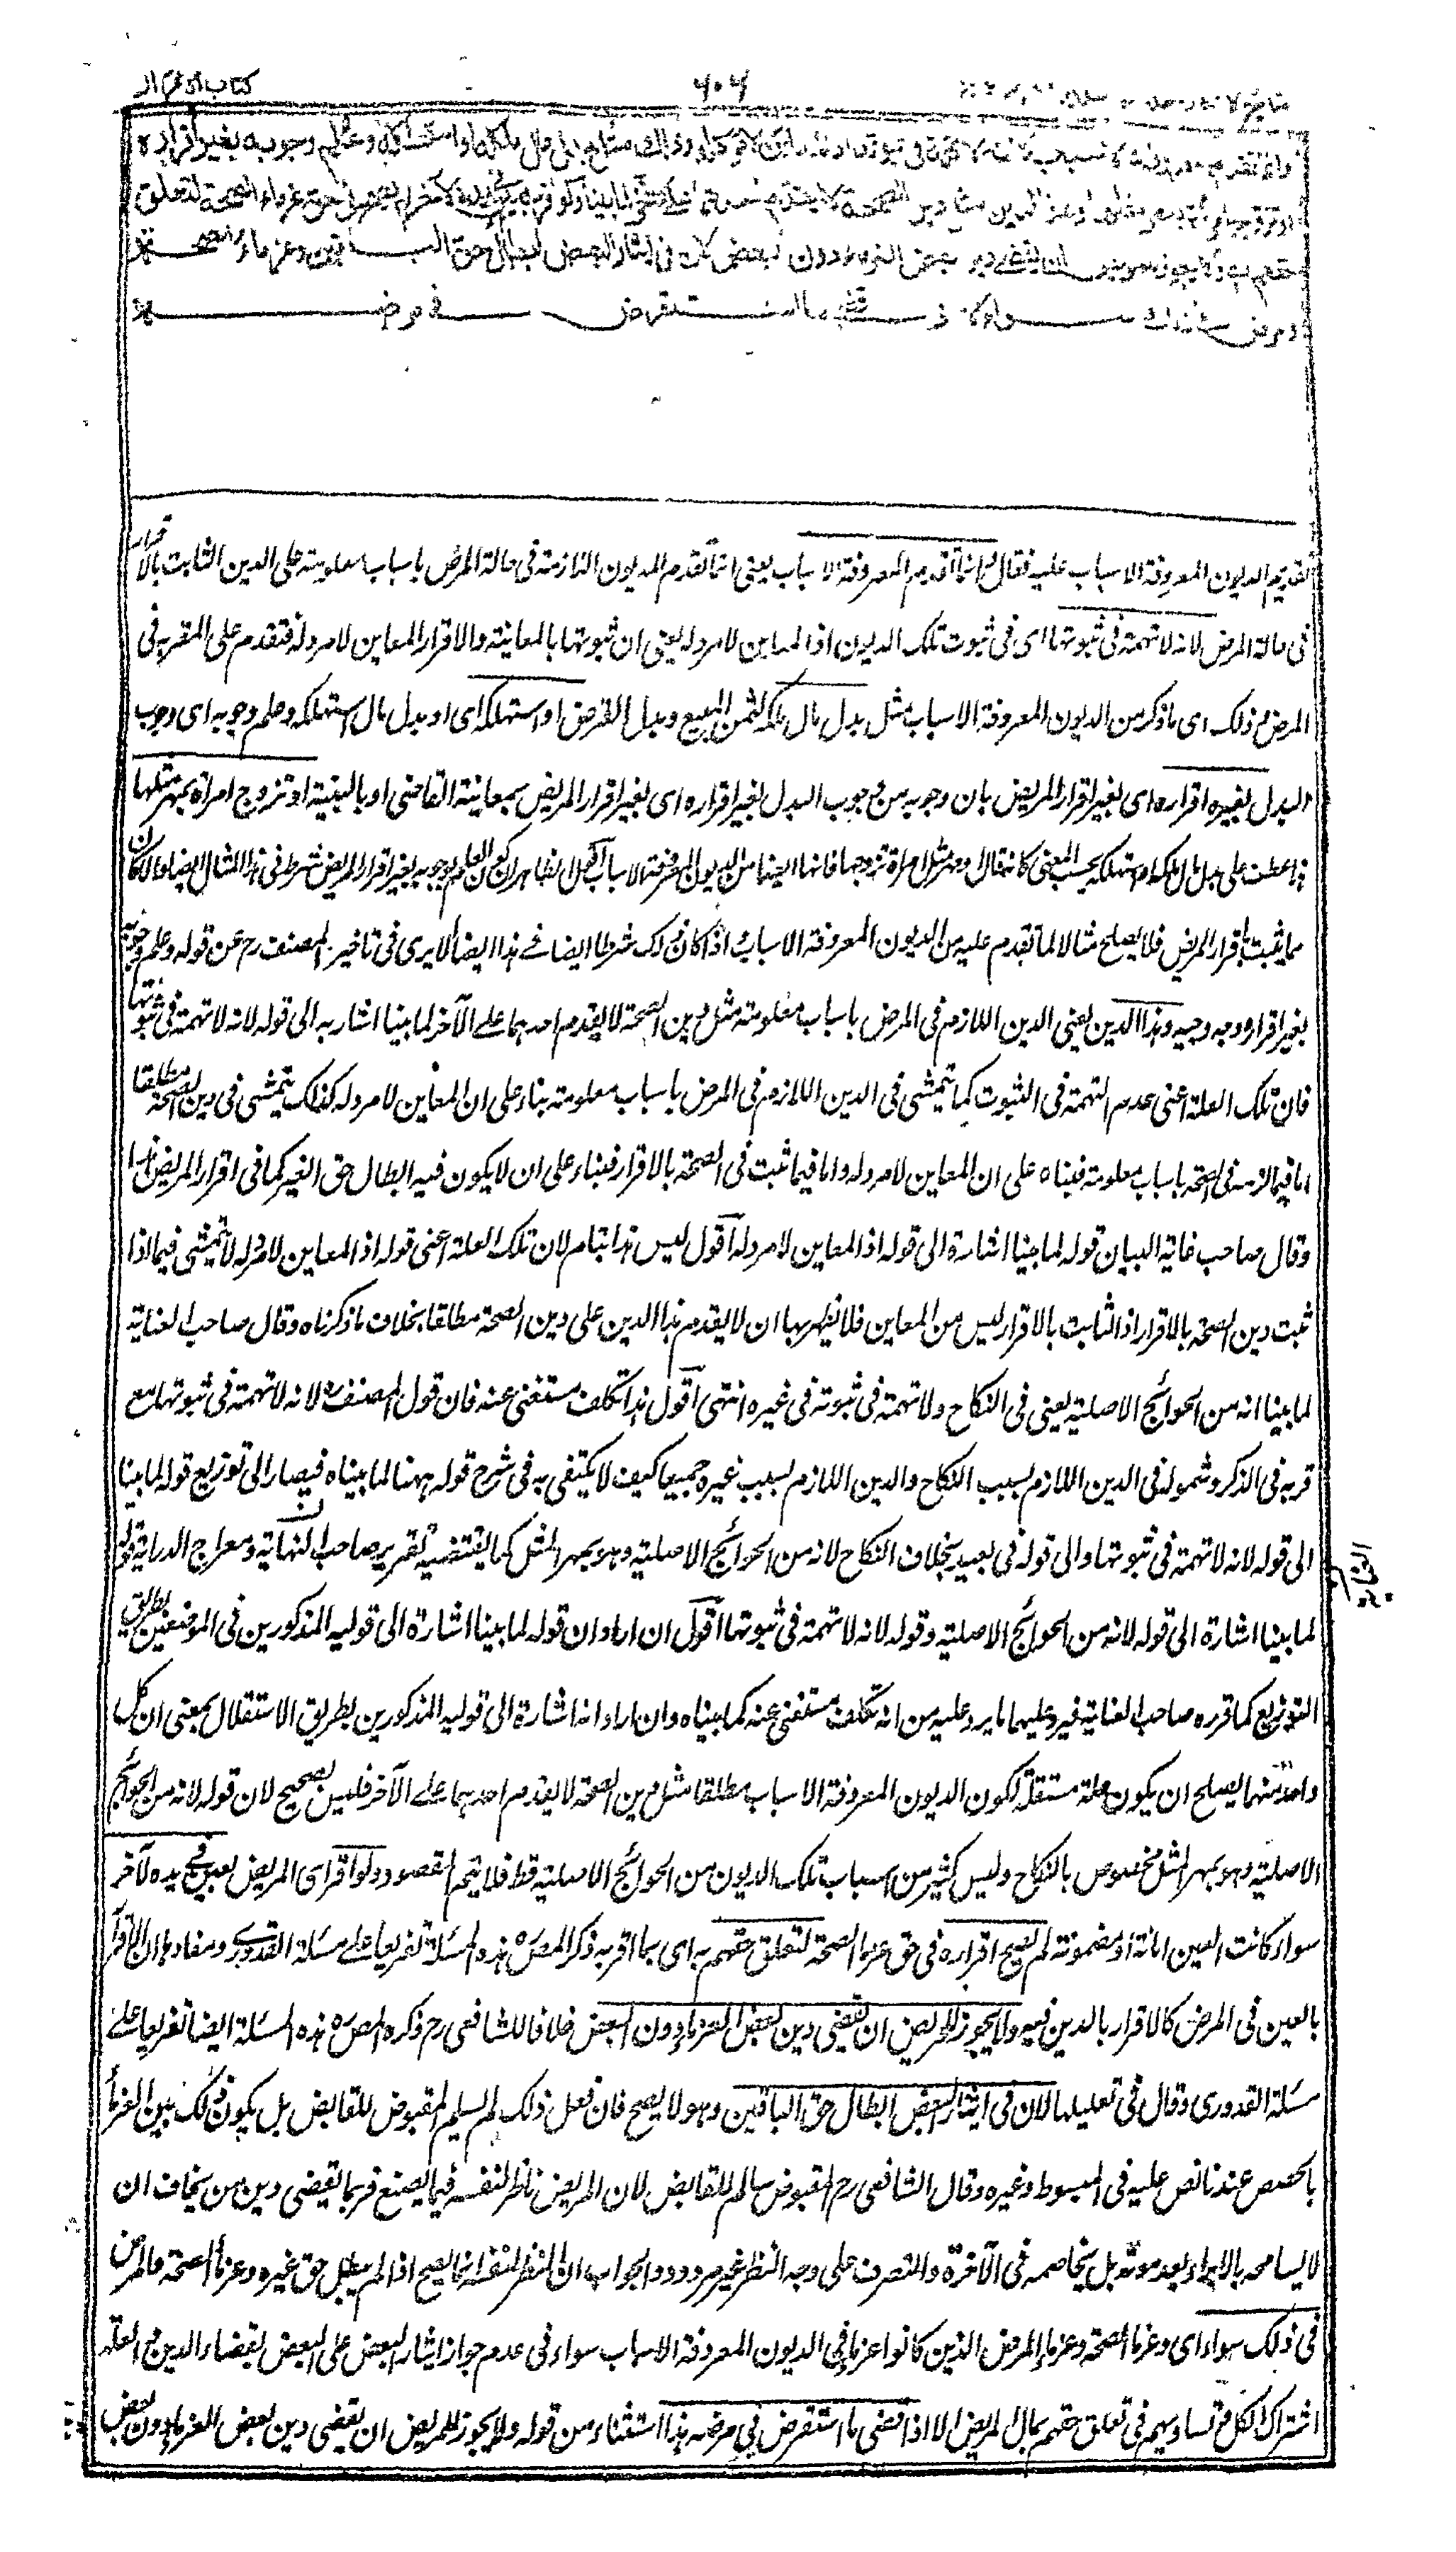 كتاب الاقرار
٦٠٦
وانما تقدم المعروفة الاسباب لانه لا تهمة في ثبوتها اذ المعاين لا مرد له وذلك مثل بدل مال ملكه او استهلكه وعلم وجوبه بغير اقراره
او تزوج امرأة بمهر مثلها وهذا الدين مثل دين الصحة لا يقدم احدهما على الآخر لما بينا ولو اقر بعين في يده لآخر لم يصح في حق غرماء الصحة لتعلق
حقهم به ولا يجوز للمريض ان يقضي دين بعض الغرماء دون البعض لان في ايثار البعض ابطال حق الباقين وغرماء الصحة
والمرض في ذلك سواء الا اذا قضى ما استقرض في مرضه
تقديم الديون المعروفة الاسباب عليه فقال وانما تقدم المعروفة الاسباب يعني انما تقدم الديون اللازمة في حالة المرض باسباب معلومة على الدين الثابت بالاقرار
في حالة المرض لانه لا تهمة في ثبوتها اى في ثبوت تلك الديون اذ المعاين لا مرد له يعني ان ثبوتها بالمعاينة والاقرار المعاين لا مرد له فتقدم على المقر به في
المرض وذلك اى ما ذكر من الديون المعروفة الاسباب مثل بدل مال ملكه كثمن المبيع وبدل القرض او استهلكه اى او بدل مال استهلكه وعلم وجوبه اى وجوب
البدل بغير اقراره اى بغير اقرار المريض بان وجوبه من وجوب البدل بغير اقراره اى بغير اقرار المريض بمعاينة القاضى او بالبينة او تزوج امرأة بمهر مثلها
هذا عطف على بدل مال ملكه او استهلكه بحسب المعنى كانه قال ومهر مثل امرأة تزوجها فانها ايضا من الديون المعروفة الاسباب اقول الظاهر ان كون العلم بوجوبه بغير اقرار المريض شرط في هذا المثال ايضا والا كان
مما يثبت باقرار المريض فلا يصلح مثالا لما تقدم عليه من الديون المعروفة الاسباب اذا كان ذلك شرطا ايضا في هذا ايضا لا يرى في تاخير المصنف رح عن قوله وعلم وجوبه
بغير اقراره وجه وجيه وهذا الدين يعني الدين اللازم في المرض باسباب معلومة مثل دين الصحة لا يقدم احدهما على الآخر لما بينا اشار به الى قوله لانه لا تهمة في ثبوتها
فان تلك العلة اعني عدم التهمة في الثبوت كما تتمشى في الدين اللازم في المرض باسباب معلومة بناء على ان المعاين لا مرد له كذلك يتمشى في دين الصحة مطلقا
اما فيما لزمه في الصحة باسباب معلومة فبناء على ان المعاين لا مرد له واما فيما ثبت في الصحة بالاقرار فبناء على ان لا يكون فيه ابطال حق الغير كما في اقرار المريض هذا
وقال صاحب غاية البيان قوله لما بينا اشارة الى قوله اذ المعاين لا مرد له اقول ليس هذا بتام لان تلك العلة اعني قوله اذ المعاين لا مرد له لا تتمشى فيما اذا
ثبت دين الصحة بالاقرار اذ الثابت بالاقرار ليس من المعاين فلا يظهر بها ان لا يقدم هذا الدين على دين الصحة مطلقا بخلاف ما ذكرناه وقال صاحب العناية
لما بينا انه من الحوائج الاصلية يعني في النكاح ولا تهمة في ثبوته في غيره انتهى اقول هذا تكلف مستغنى عنه فان قول المصنف ره لانه لا تهمة في ثبوتها مع
قربه في الذكر وشموله في الدين اللازم بسبب النكاح والدين اللازم بسبب غيره جميعا كيف لا يكتفى به في شرح قوله ههنا لما بيناه فيصار الى توزيع قوله لما بينا
الى قوله لانه لا تهمة في ثبوتها والى قوله في بعيد بخلاف النكاح لانه من الحوائج الاصلية وهو بمهر المثل كما يقتضيه تقرير صاحب النهاية ومعراج الدراية قوله
لما بينا اشارة الى قوله لانه من الحوائج الاصلية وقوله لانه لا تهمة في ثبوتها اقول ان اراد ان قوله لما بينا اشارة الى قوليه المذكورين في الموضعين بطريق
التوزيع كما قرره صاحب العناية فيرد عليهما ما يرد عليه من انه تكلف مستغنى عنه كما بيناه وان اراد انه اشارة الى قوليه المذكورين بطريق الاستقلال بمعنى ان كل
واحد منهما يصلح ان يكون علة مستقلة لكون الديون المعروفة الاسباب مطلقا مثل دين الصحة لا يقدم احدهما على الآخر فليس بصحيح لان قوله لانه من الحوائج
الاصلية وهو بمهر المثل مخصوص بالنكاح وليس كثير من اسباب تلك الديون من الحوائج الاصلية قط فلا يتم المقصود ولو اقر اى المريض بعين في يده لآخر
سواء كانت العين امانة او مضمونة لم يصح اقراره في حق غرماء الصحة لتعلق حقهم به اى بما اقر به ذكر المص ره هذه المسئلة تفريعا على مسئلة القدورى ومفادها ان الاقرار
بالعين في المرض كالاقرار بالدين فيه ولا يجوز للمريض ان يقضى دين بعض الغرماء دون البعض خلافا للشافعى رح ذكره المص ره هذه المسئلة ايضا تفريعا على
مسئلة القدورى وقال في تعليلها لان في ايثار البعض ابطال حق الباقين وهو لا يصح فان فعل ذلك لم يسلم المقبوض للقابض بل يكون ذلك بين الغرماء
بالحصص عندنا نص عليه في المبسوط وغيره وقال الشافعى رح المقبوض سالم للقابض لان المريض ناظر لنفسه فيما يصنع فربما يقضى دين من يخاف ان
لا يسامحه بالابراء بعد موته بل يخاصمه في الآخرة والتصرف على وجه النظر غير مردود والجواب ان النظر لنفسه انما يصح اذا لم يبطل حق غيره وغرماء الصحة والمرض
في ذلك سواء اى وغرماء الصحة وغرماء المرض الذين كانوا غرماء في الديون المعروفة الاسباب سواء في عدم جواز ايثار البعض على البعض بقضاء الدين مع العلة
اشتراك الكل وتساويهم في تعلق حقهم بمال المريض الا اذا قضى ما استقرض في مرضه هذا استثناء من قوله ولا يجوز للمريض ان يقضى دين بعض الغرماء دون بعض